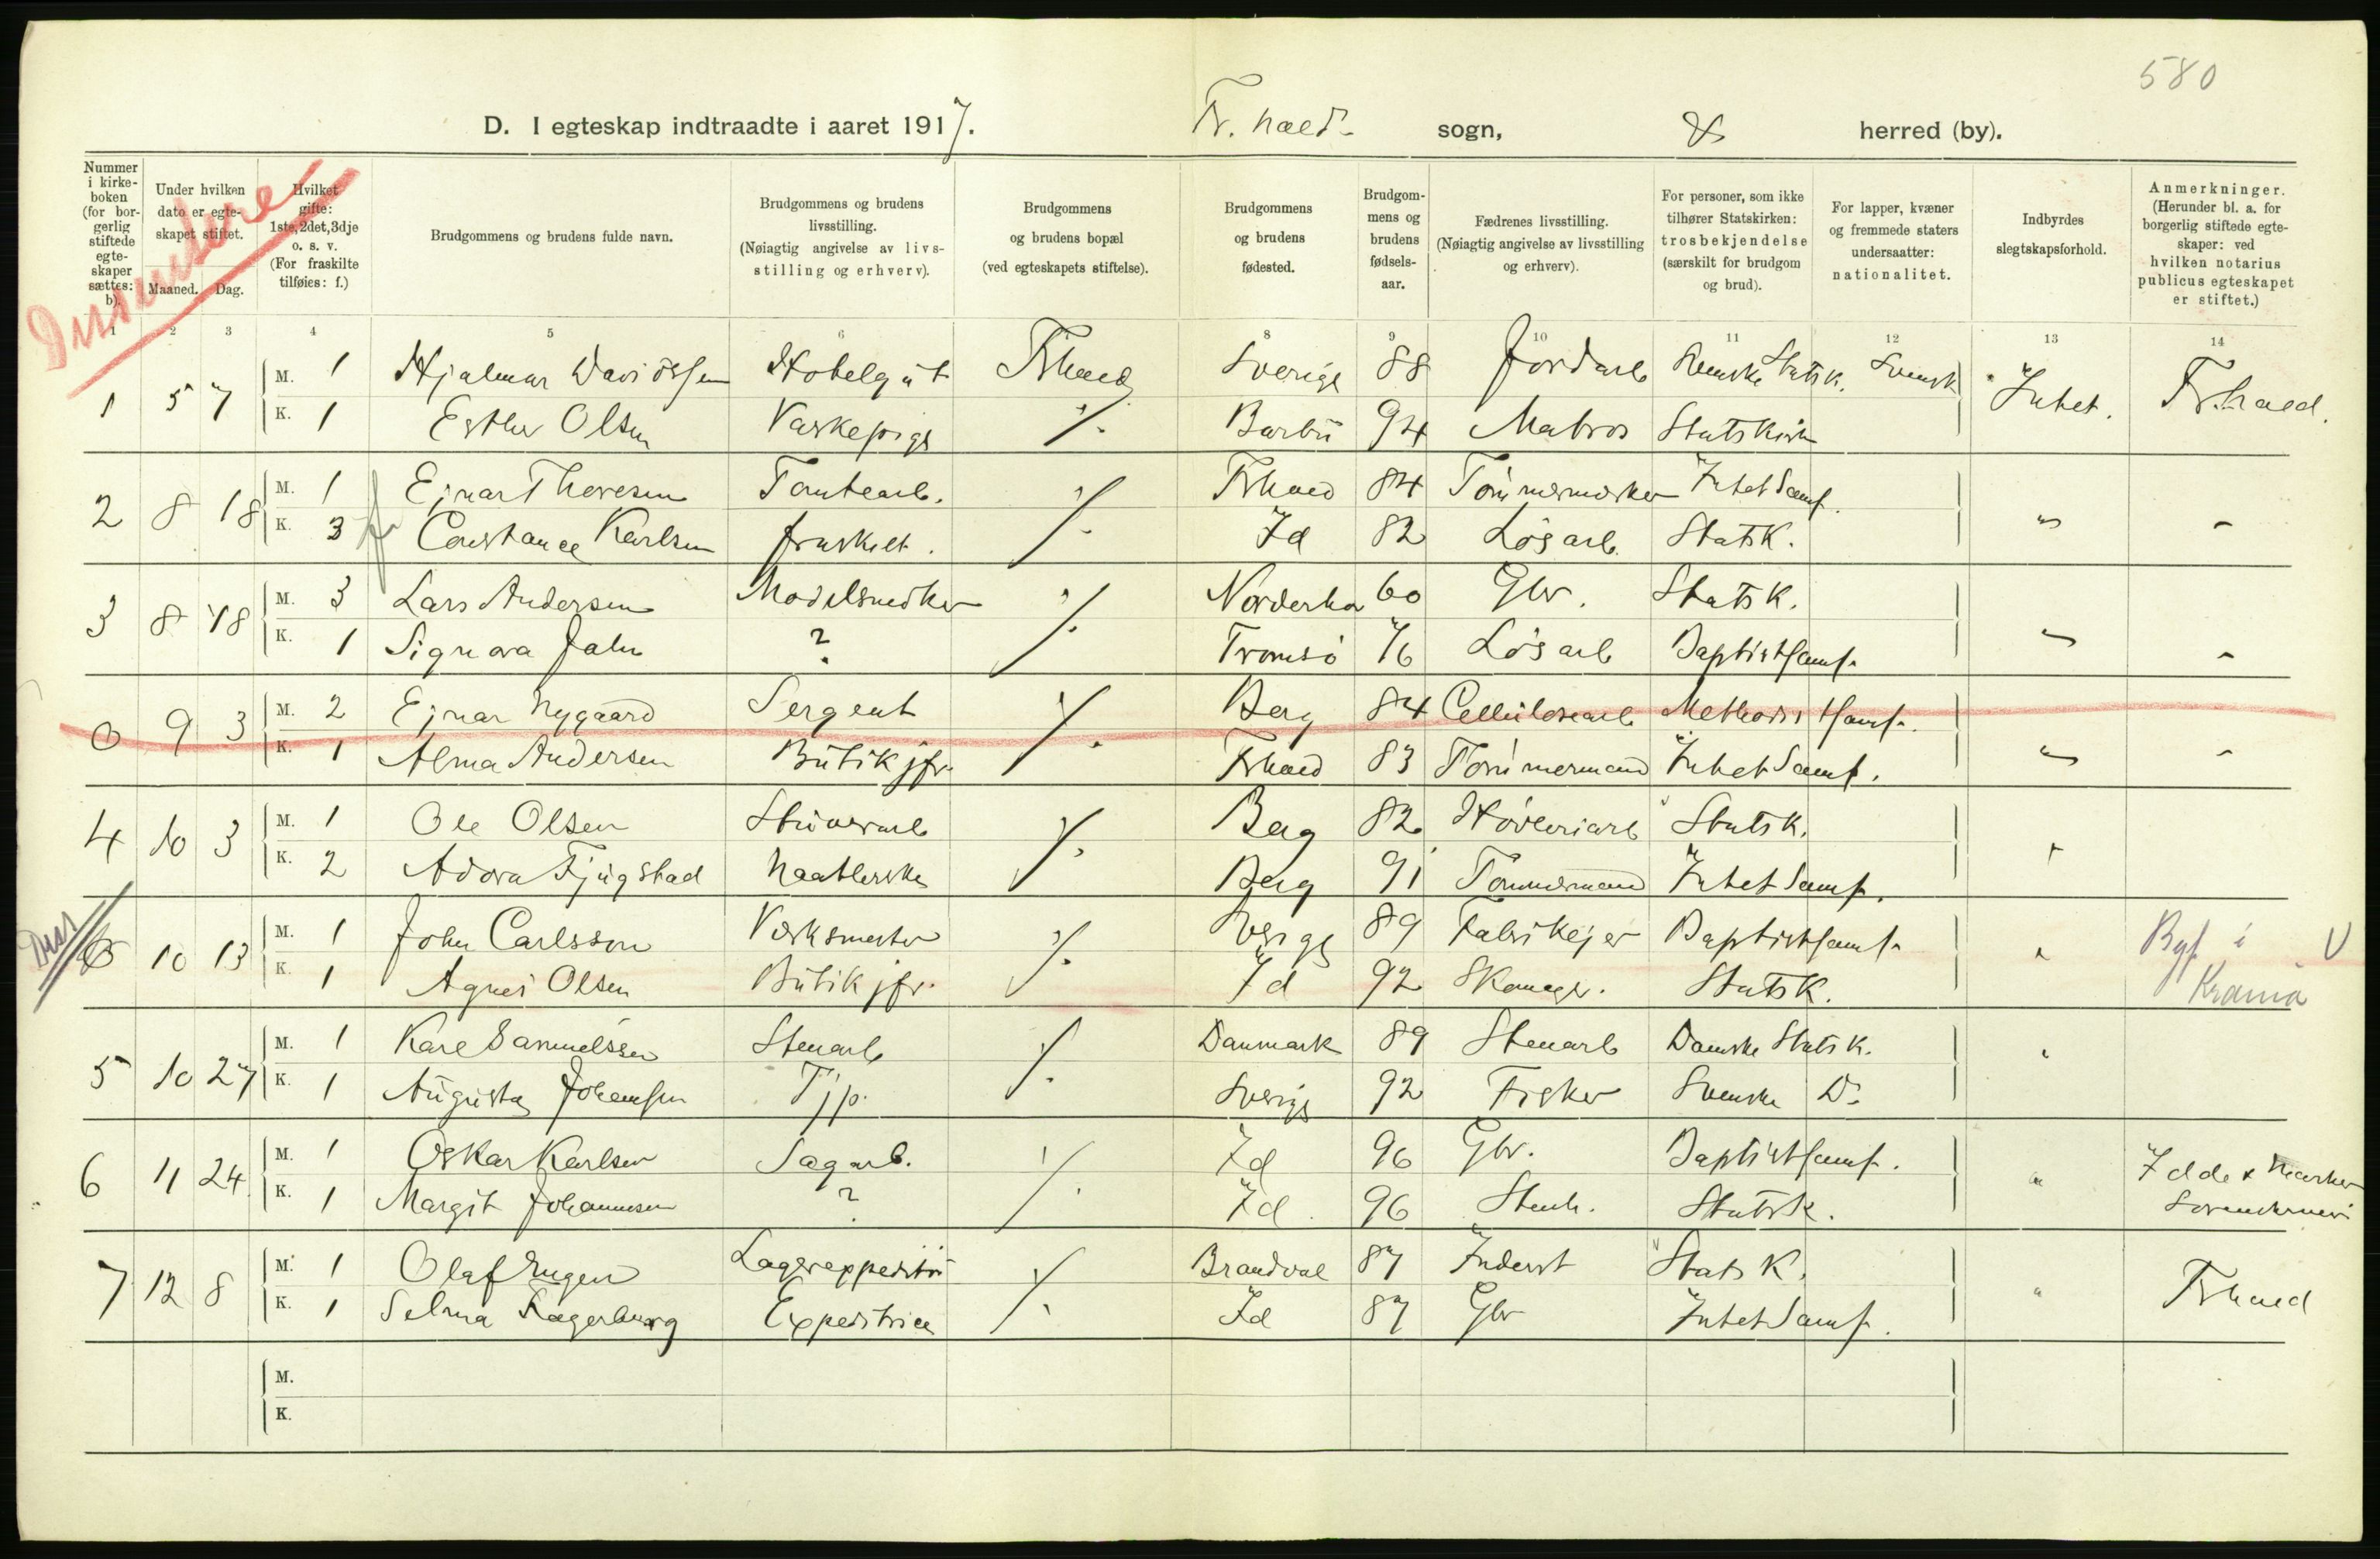 580
D. I egteskap indtraadte i aaret 1917. Fr. hald sogn, herred (by).
Dissentere
Nummer i kirkeboken (for borgerlig stiftede egteskaper sættes: b).
Under hvilken dato er egteskapet stiftet.
Maaned. Dag.
Hvilket gifte: 1ste, 2det, 3dje o. s. v. (For fraskilte tilføies: f.)
Brudgommens og brudens fulde navn.
Brudgommens og brudens livsstilling. (Nøiagtig angivelse av livsstilling og erhverv).
Brudgommens og brudens bopæl (ved egteskapets stiftelse).
Brudgommens og brudens fødested.
Brudgommens og brudens fødselsaar.
Fædrenes livsstilling. (Nøiagtig angivelse av livsstilling og erhverv).
For personer, som ikke tilhører Statskirken: trosbekjendelse (særskilt for brudgom og brud).
For lapper, kvæner og fremmede staters undersaatter: nationalitet.
Indbyrdes slegtskapsforhold.
Anmerkninger. (Herunder bl. a. for borgerlig stiftede egteskaper: ved hvilken notarius publicus egteskapet er stiftet.)
1 2 3 4 5 6 8 9 10 11 12 13 14
1 5 7 M. 1 Hjalmar Davidssen Hotelgut Frhald Sverige 88 Jordarb Svenske Statsk. Svensk Intet. Fr.hald.
K. 1 Esther Olsen Vaskepige ./. Barbu 94 Matros Statskirk
2 8 18 M. 1 Ejnar Thoresen Tomtearb. ./. Frhald 84 Tømmermerker Intet Samf. " "
K. 3 f Constance Karlsen fraskilt. Id 82 Løsarb. Statsk.
3 8 18 M. 3 Lars Andersen Modelsnedker ./. Norderho 60 Gbr. Statsk. " "
K. 1 Signora Jahr ? Tromsø 76 Løsarb Baptistsamf.
0 9 3 M. 2 Ejnar Nygaard Sergent ./. Berg 84 Cellulosearb Methodistsamf. " "
K. 1 Alma Andersen Butikjfr. Frhald 83 Tømmermand Intet Samf.
4 10 3 M. 1 Ole Olsen Stuverarb ./. Berg 82 Høvleriarb Statsk. "
K. 2 Adora Fjugstad Naatlerske Berg 91 Tømmermand Intet Samf.
Diss
10 13 M. 1 John Carlsson Verksmester ./. Sverige 89 Fabrikejer Baptistsamf. " Byf. i Krania V
K. 1 Agnes Olsen Butikjfr. Id 92 Skomager. Statsk.
5 10 27 M. 1 Karl Samuelssen Stenarb ./. Danmark 89 Stenarb Danske Statsk. "
K. 1 Augusta Johansen Tjp. Sverige 92 Fisker Svenske Do
6 11 24 M. 1 Oskar Karlsen Sagarb. ./. Id 96 Gbr. Baptistsamf. " Idde & Marker Sorenskriveri
K. 1 Margit Johannesen ? Id 96 Stenh. Statsk.
7 12 8 M. 1 Olaf Engen Lagerexpeditør ./. Brandval 87 Inderst Statsk. " Frhald
K. 1 Selma Fagerberg Expeditrice Id 87 Gbr Intet Samf.
M.
K.